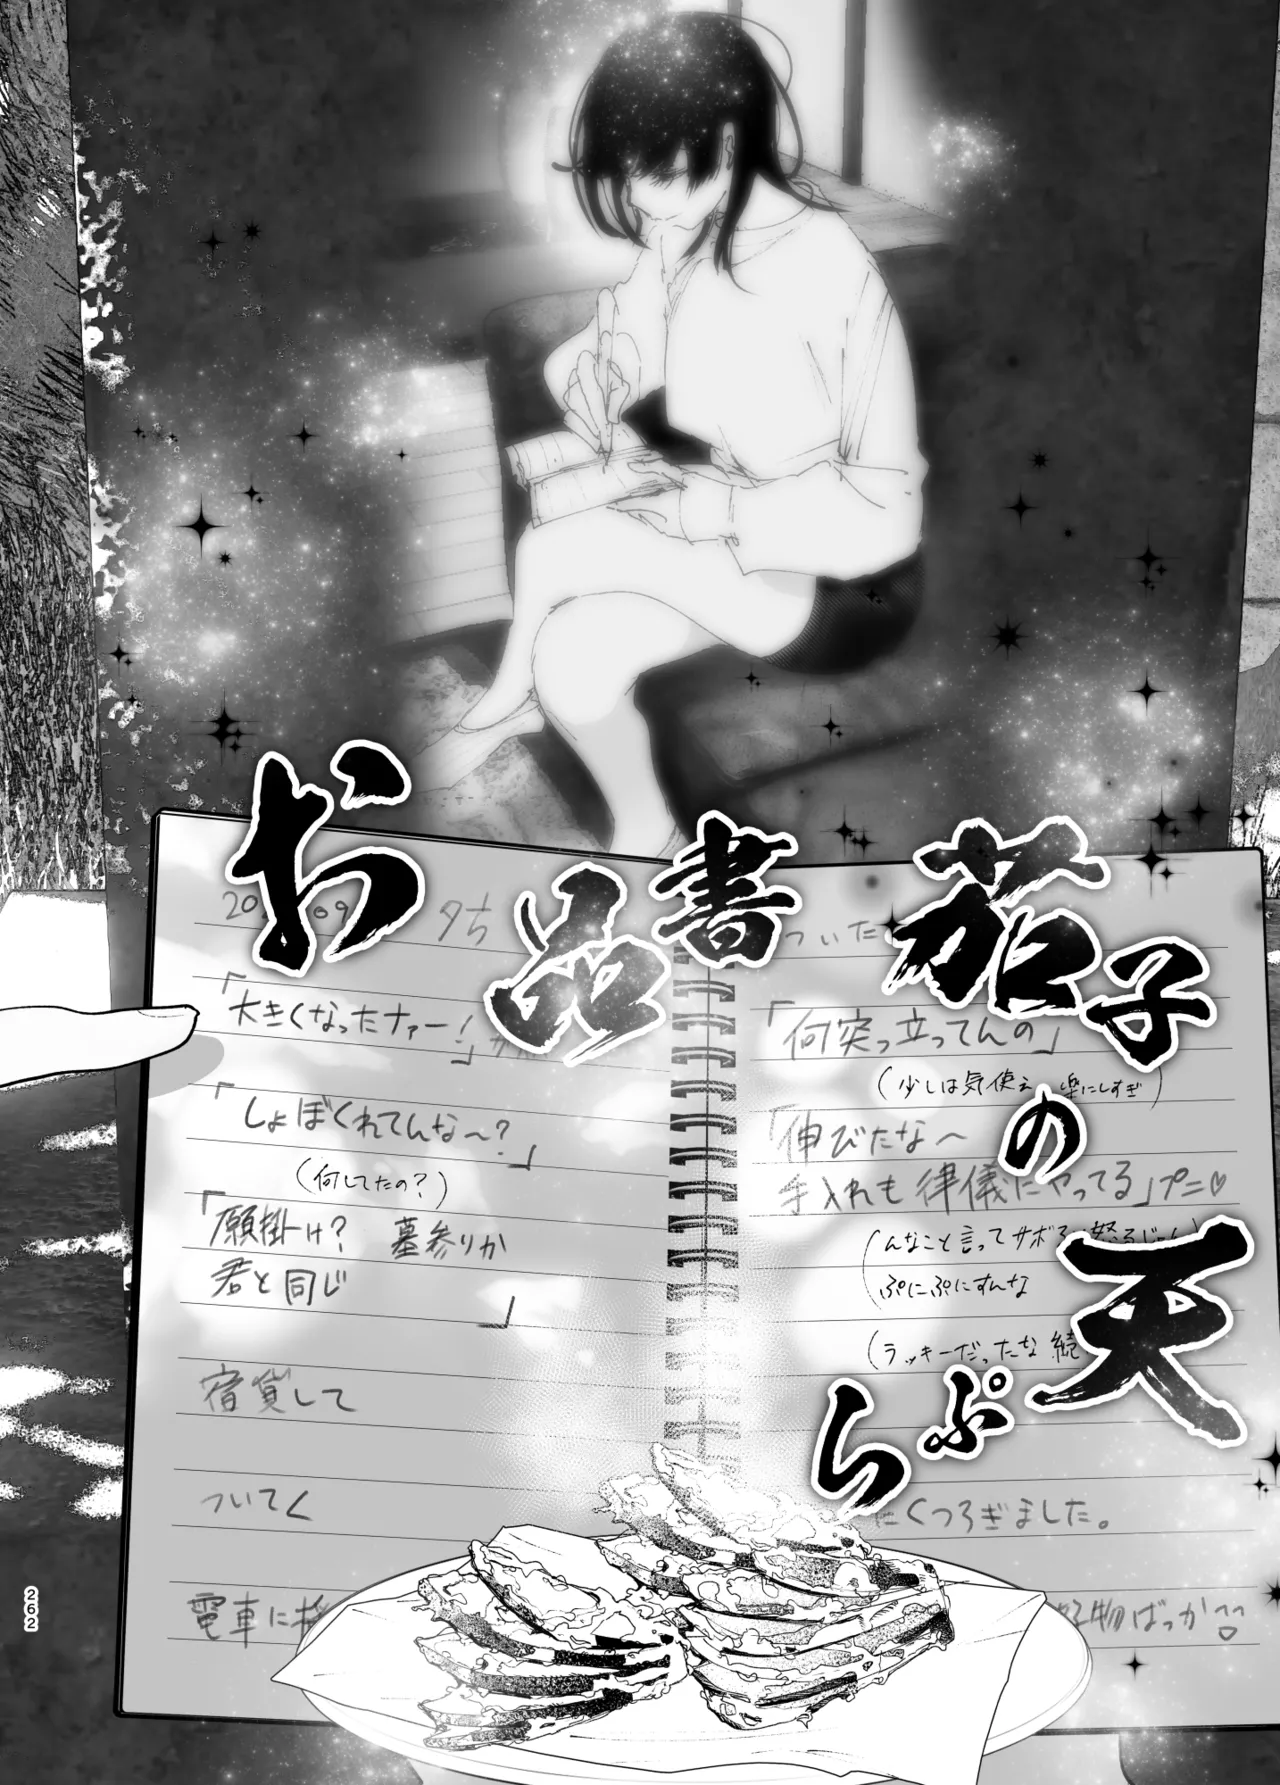 お品書
茄子の天ぷら
「大きくなったナァー！」
「しょぼくれてんな〜？」
(何してたの？)
「願掛け？ 墓参りか
君と同じ
」
宿貸して
ついてく
電車に
ついた
「何突っ立ってんの」
(少しは気使え 楽にしすぎ)
「伸びたな〜
手入れも律儀にやってる」プニ♡
(んなこと言ってサボ
ぷにぷにすんな
(ラッキーだったな 続
にくつろぎました。
好物ばっか
262